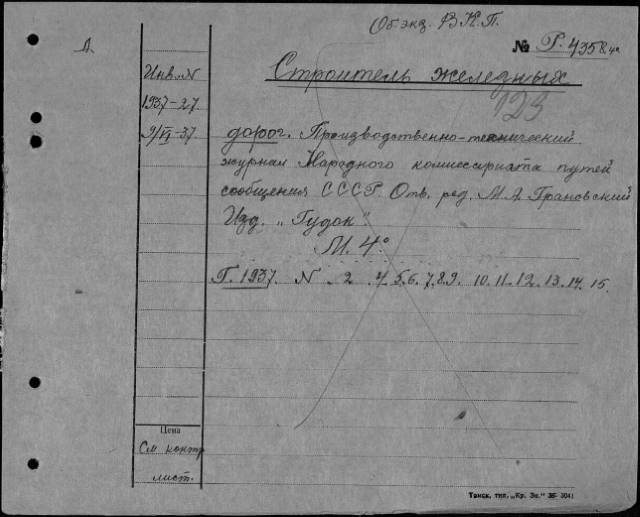 Об экз. В.К.П.
А
№ Р. 4358
Инв. N
Строитель железных
123
1937-27
9/VI-37
дорог. Производственно-технический
журнал Народного комиссариата путей
сообщения СССР. Отв. ред. М.А. Грановский
Изд. „Гудок"
М. 4°
Г. 1937. N 2 4.5.6.7.8.9. 10.11.12.13.14.15.
Цена
См. контр
лист.
Томск, тип. „Кр. Зн." 36- 3041